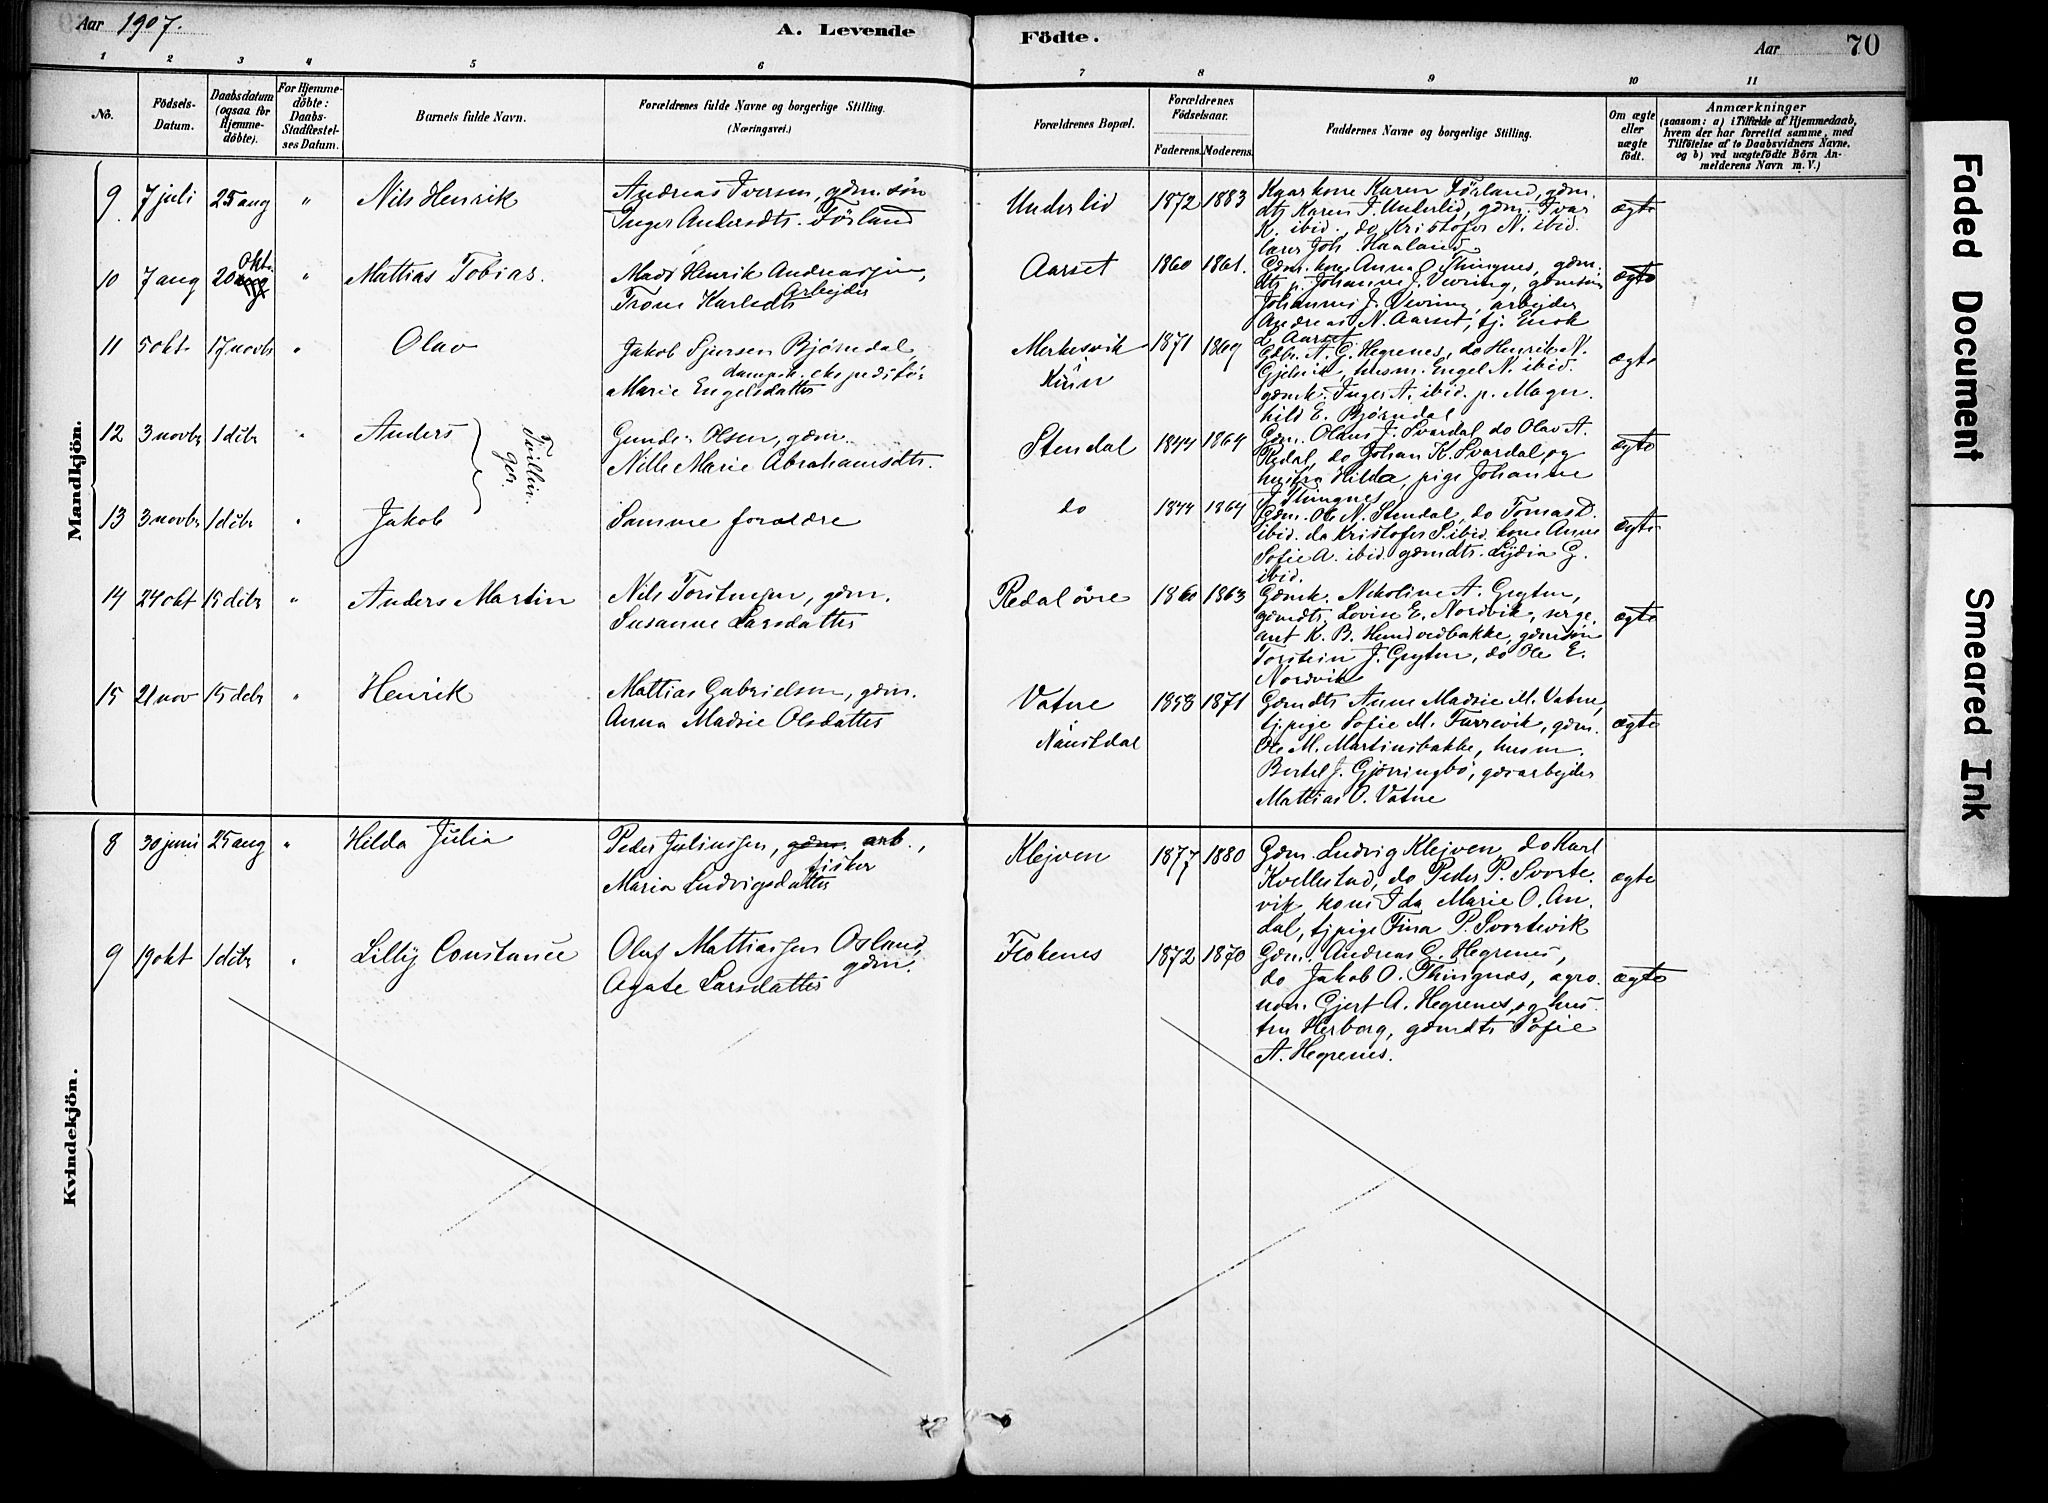 Aar 1907.
A. Levende Födte.
Aar
70
1 2 3 4 5 6 7 8 9 10 11
No.
Födsels-Datum.
Daabsdatum (ogsaa for Hjemme-döbte).
For Hjemme-döbte: Daabs-Stadfæstel-ses Datum.
Barnets fulde Navn.
Forældrenes fulde Navne og borgerlige Stilling. (Næringsvei.)
Forældrenes Bopæl.
Forældrenes Födselsaar.
Faderens. Moderens.
Faddernes Navne og borgerlige Stilling.
Om ægte eller uægte födt.
Anmærkninger
(saasom: a) i Tilfælde af Hjemmedaab,
hvem der har forrettet samme, med
Tilföielse af to Daabsvidners Navne,
og b) ved uægtefödte Börn An-
melderens Navn m. V.)
Mandkjön.
9 7 juli 25 aug " Nils Henrik
Andreas Iversen, gdm. søn
Inger Andersdtr. Förland
Underlid 1872 1883
Kaarkone Karen Förland, gdm.
dtr Karen I. Underlid, gdm. Ivar
K. ibid., do Kristofer N. ibid.
lærer Joh. Haaland
ægte
10 7 aug 20 okt. " Mattias Tobias.
Mads Henrik Andreassen,
Arbejder
Trone Karlsdtr
Aarset 1860 1861.
Gdm. kone Anna O. Thingnes, gdm.
dtr p. Johanne J. Vevring, gdmsøn
Johannes J. Vevring, arbejder
Andreas N. Aarset, tj. Enok
L. Aarset
ægte
11 5 okt. 17 novbr " Olav
Jakob Sjursen Bjørndal,
dampsk. ekspeditør
Marie Engelsdatter
Merkesvik 1871 1869
Kinn
Gdbr. A. G. Hegrenes, do Henrik N.
Gjelsvik, husm. Engel N. ibid.
gdmk. Inger A. ibid. p. Magn.
hild E. Bjørndal
ægte
12 3 novbr 1 dcbr " Anders
Tvillin.
ger.
Gunder Olsen, gdm.
Nille Marie Abrahamsdtr.
Stendal 1844 1864
Gdm. Olaus J. Svardal do Olav A.
Redal, do Johan K. Svardal og
hustru Hilda, pige Johanne
J. Thingnes
ægte
13 3 novbr 1 dcbr " Jakob
Samme forældre
do 1844 1864
Gdm. Ole N. Stendal, do Tomas D.
ibid. do Kristofer S. ibid. kone Anne
Sofie A. ibid. gdmdtr. Lydia G.
ibid.
ægte
14 24 okt 15 dcbr " Anders Martin
Nils Torstensen, gdm.
Susanne Larsdatter
Redal övre 1860 1863
Gdmk. Nikoline A. Grytten,
gdmdtr. Lovise E. Nordvik, serge.
ant K. B. Hundvedbakke, gdmsøn
Torstein J. Grytten, do Ole E.
Nordvik
ægte
15 21 nov 15 dcbr " Henrik
Mattias Gabrielsen, gdm.
Anna Madsie Olsdatter
Vatne 1853 1871
Naustdal
Gdmdtr Anne Madsie M. Vatne,
tj. pige Sofie M. Furrevik, gdm.
Ole M. Martinsbakke, husm.
Bertel J. Gjörringbö, gdsarbejder
Mattias O. Vatne
ægte
Kvindekjön.
8 30 juni 25 aug " Hilda Julia
Peder Juliussen, gdm. arb.,
fisker
Maria Ludvigsdatter
Klejven 1877 1880
Gdm. Ludvig Klejven, do Karl
Kvellestad, do Peder P. Svorte.
vik kone Ida Marie O. An.
dal, tj. pige Fina P. Svortevik
ægte
9 19 okt 1 dcbr " Lilly Constance
Oluf Mattiassen Osland,
gdm.
Agate Larsdatter
Flokenes 1872 1870
Gdm. Andreas G. Hegrenes,
do Jakob O. Thingnæs, agro.
nom. Gjert A. Hegrenes, og hus-
tru Herborg, gdmdtr Sofie
A. Hegrenes.
ægte
Faded Document
Smeared Ink